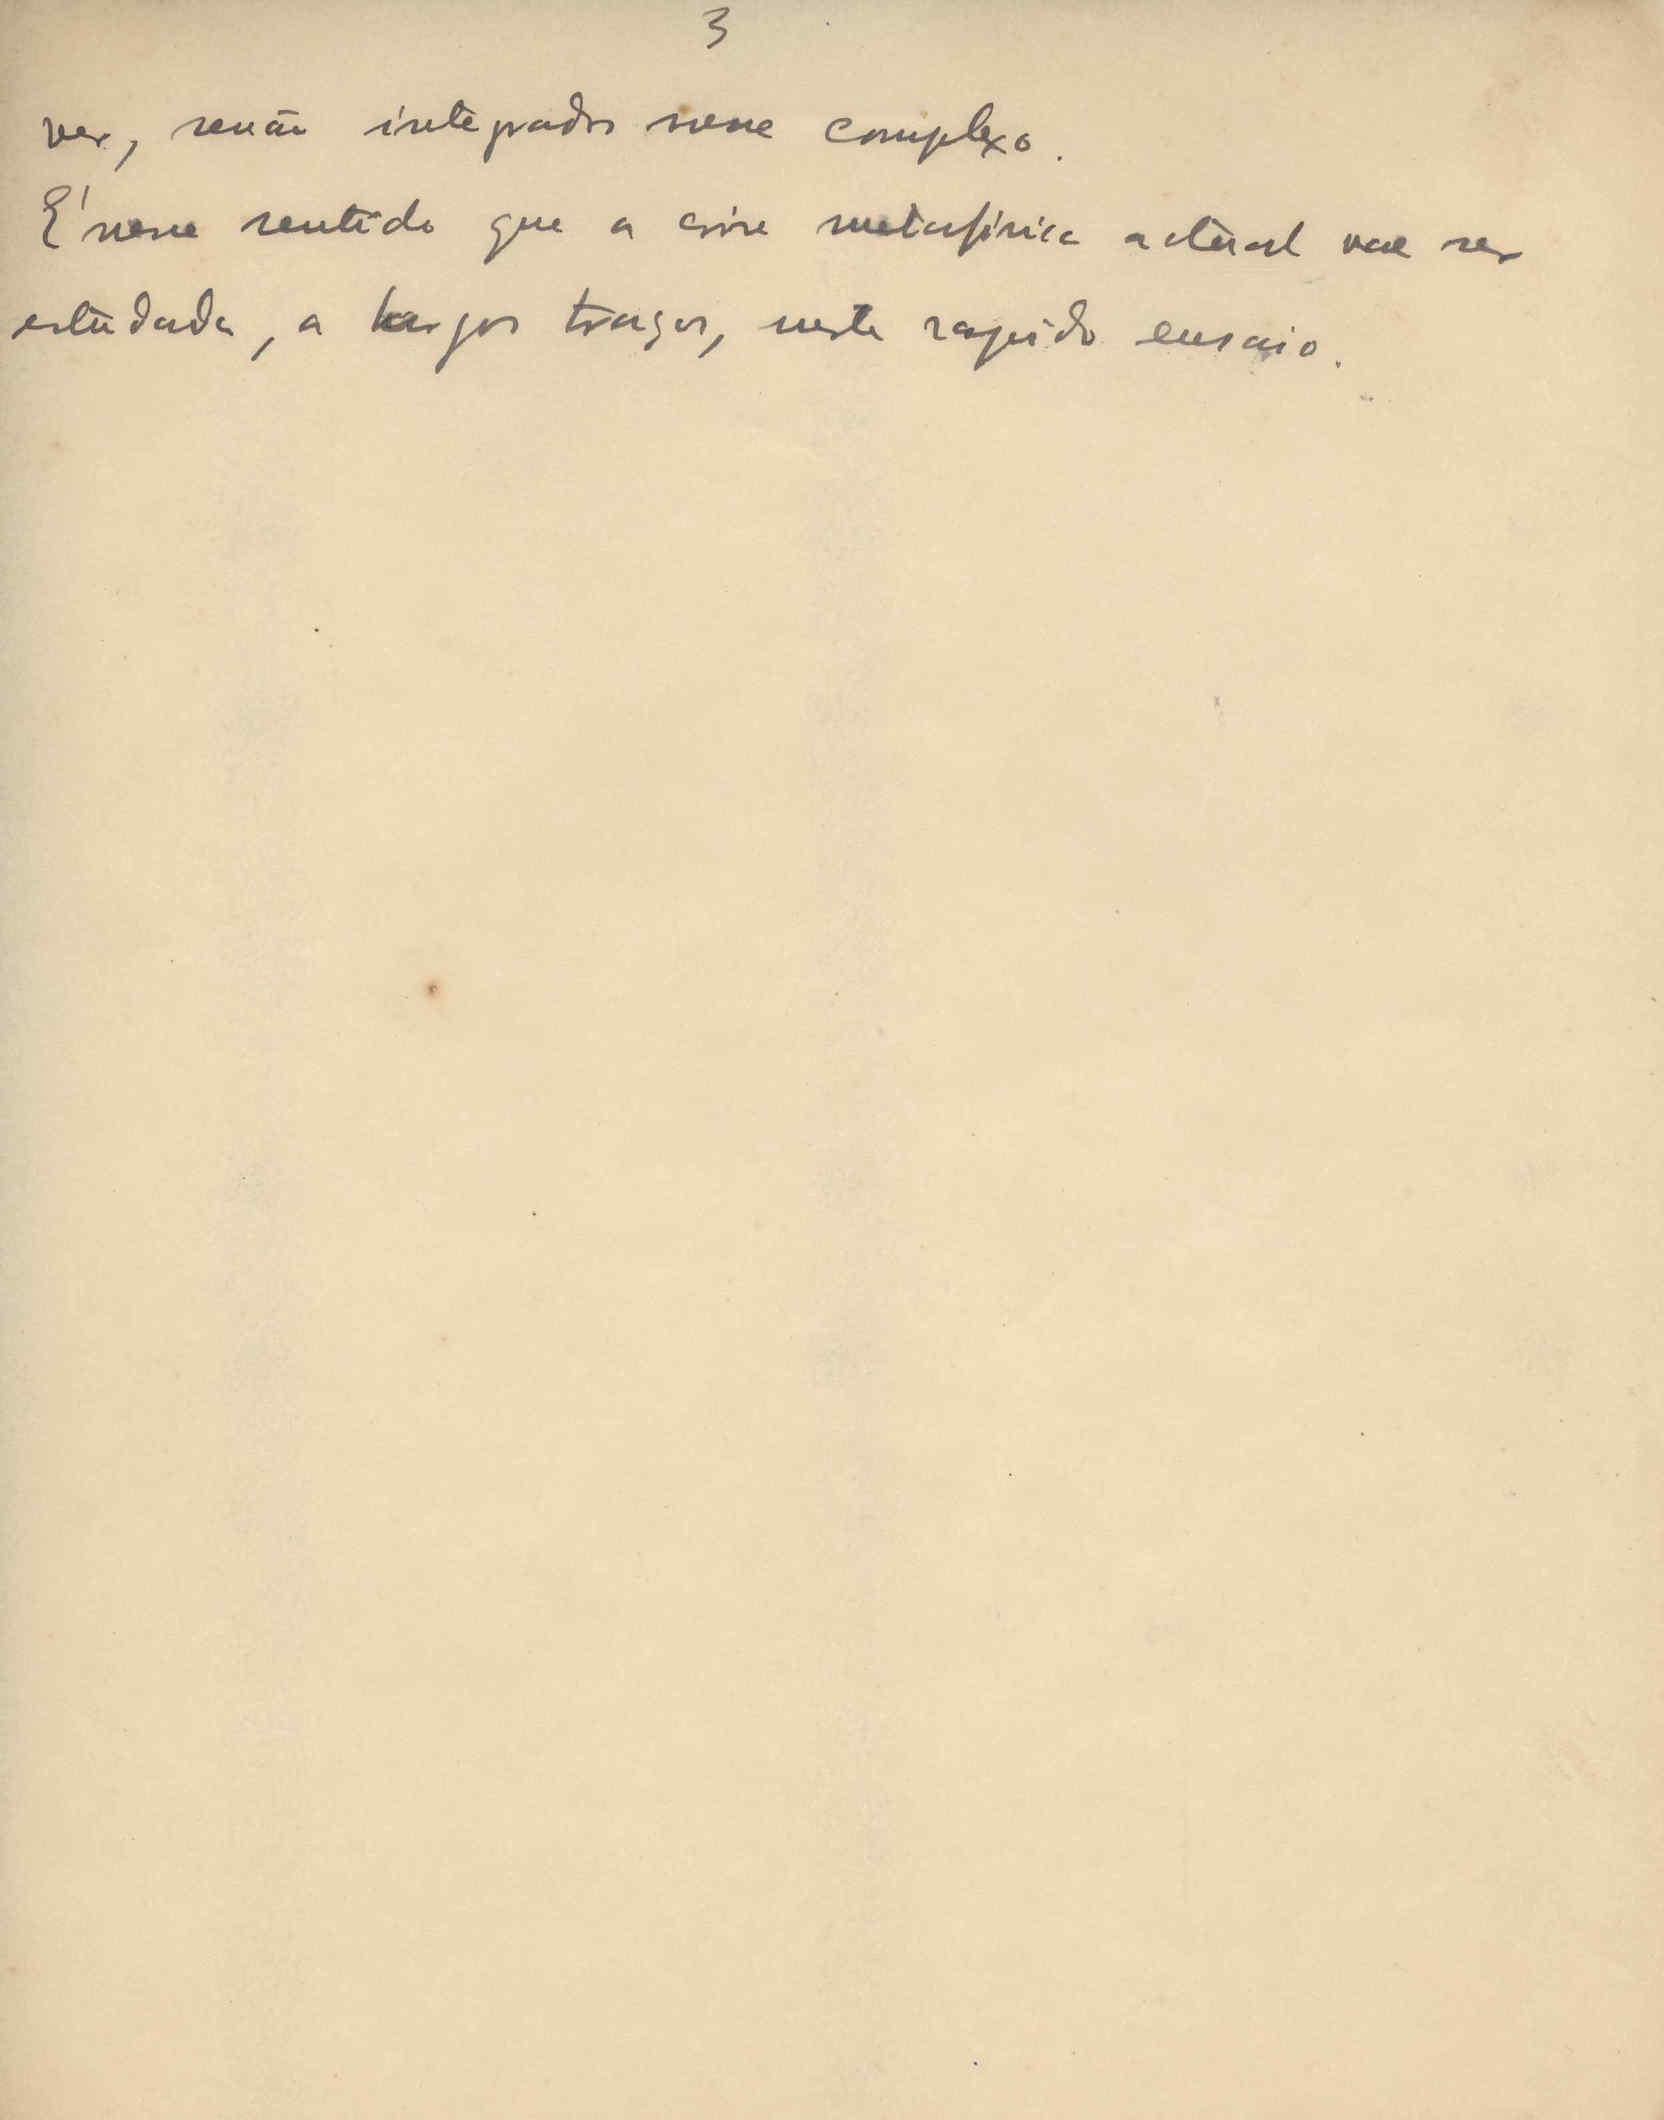 3
ver, senão integrados nesse complexo.
É nesse sentido que a crise metafísica actual vae ser
estudada, a largos traços, neste rapido ensaio.